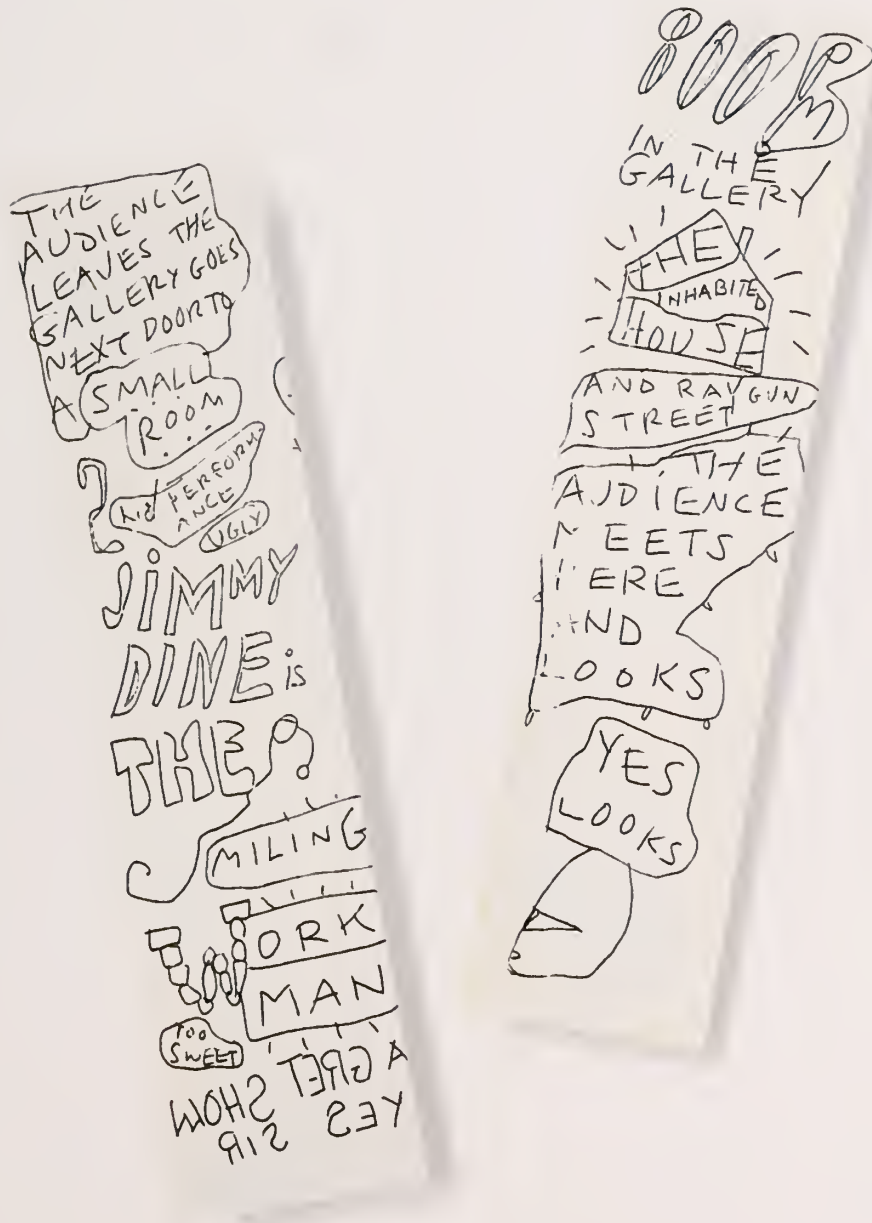 THE
AUDIENCE
LEAVES THE
GALLERY GOES
NEXT DOOR TO
A SMALL
ROOM
2
PERFORM
ANCE
UGLY
JIMMY
DINE is
THE
SMILING
WORK
MAN
TOO
SWEET
A GRET
SHOW
YES SIR
IN THE
GALLERY
THE
INHABITED
HOUSE
AND RAYGUN
STREET
THE
AUDIENCE
MEETS
HERE
AND
LOOKS
YES
LOOKS